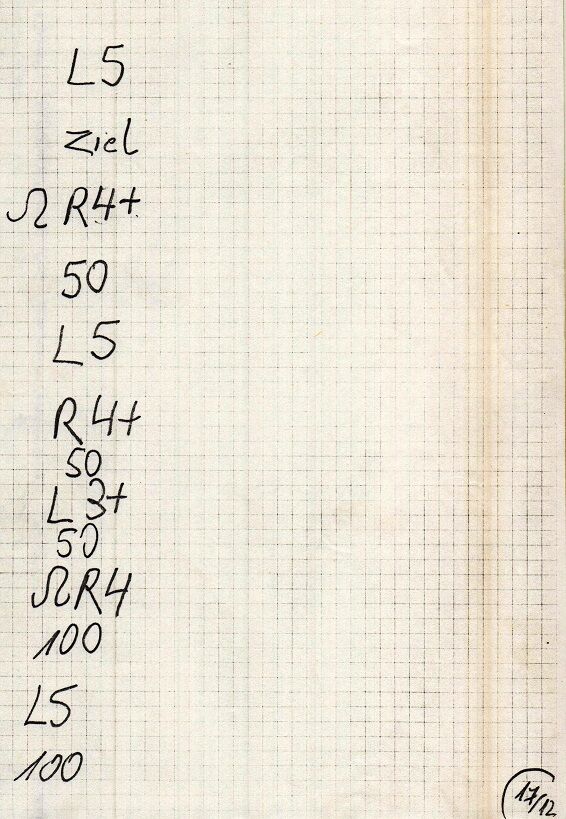 L5
Ziel
Ω R4+
50
L5
R4+
50
L3+
50
ΩR4
100
L5
100
17/12